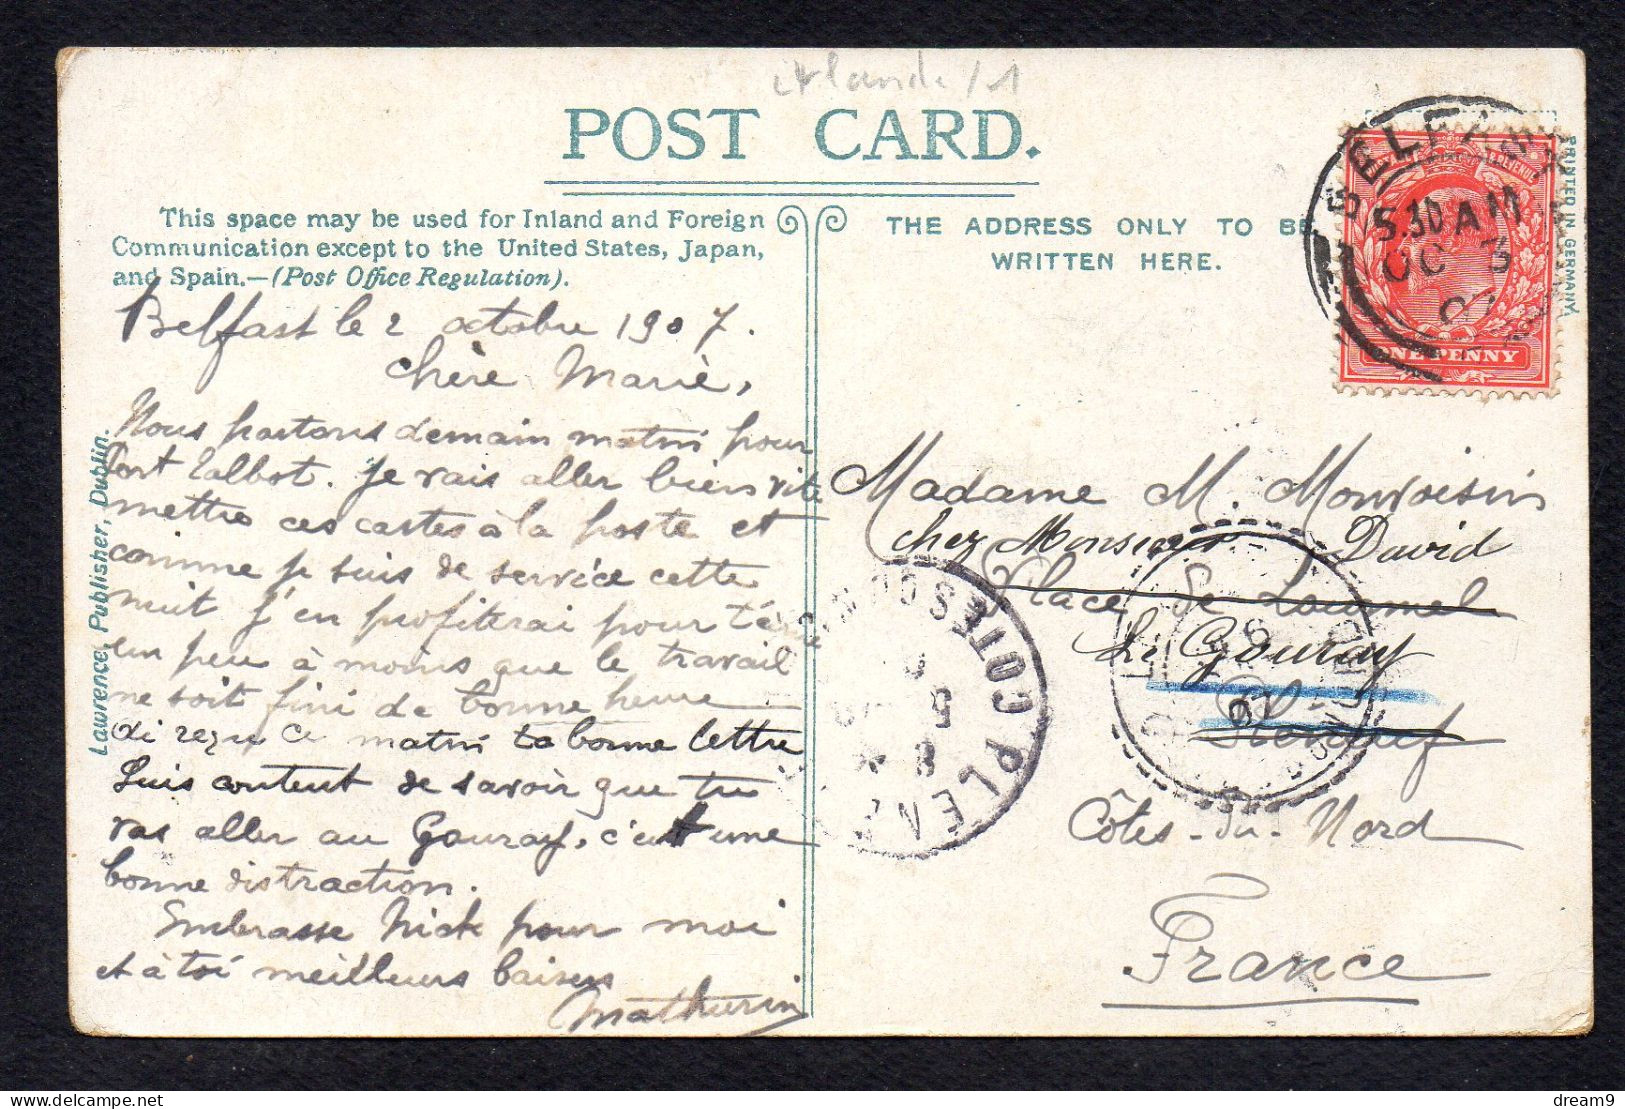 Irlande / 1
POST CARD.
This space may be used for Inland and Foreign
Communication except to the United States, Japan,
and Spain.—(Post Office Regulation).
Belfast le 2 octobre 1907.
Chère Marie,
Nous partons demain matin pour
Port Talbot. Je vais aller bien vite
mettre ces cartes à la poste et
comme je suis de service cette
nuit j'en profiterai pour t'écrire
un peu à moins que le travail
ne soit fini de bonne heure
ai reçu ce matin ta bonne lettre
Suis content de savoir que tu
vas aller au Gouray, c'est une
bonne distraction.
Embrasse Nick pour moi
et à toi meilleurs baisers
Mathurin
Lawrence, Publisher, Dublin.
THE ADDRESS ONLY TO BE
WRITTEN HERE.
BELFAST
5.30 AM
OC 3
07
ONE PENNY
PRINTED IN GERMANY.
Madame M. Monvoisin
chez Monsieur David
Place de Lourmel
Le Gouray
Pléneuf
Côtes-du-Nord
France
PLENEUF COTES DU N